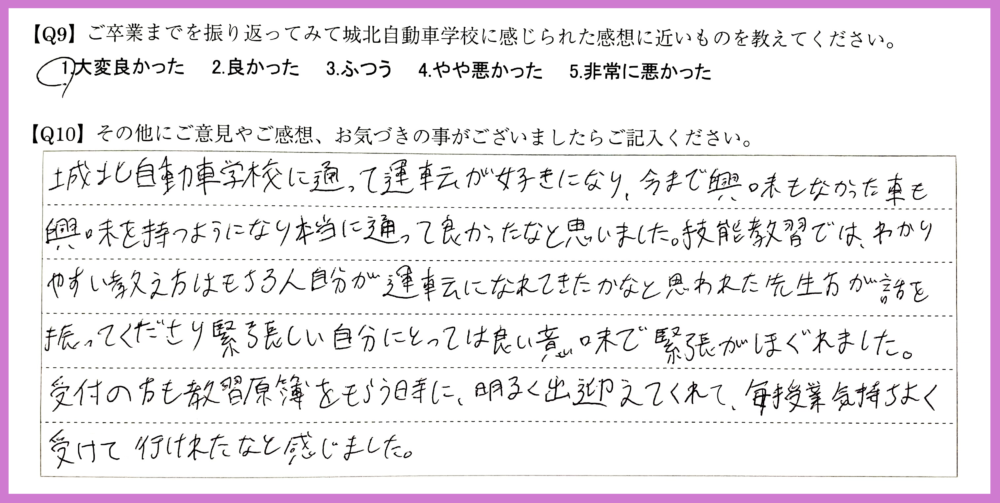 【Q9】ご卒業までを振り返ってみて城北自動車学校に感じられた感想に近いものを教えてください。
1.大変良かった 2.良かった 3.ふつう 4.やや悪かった 5.非常に悪かった
【Q10】その他にご意見やご感想、お気づきの事がございましたらご記入ください。
城北自動車学校に通って運転が好きになり、今まで興味もなかった車も
興味を持つようになり本当に通って良かったなと思いました。技能教習では、わかり
やすい教え方はもちろん自分が運転になれてきたかなと思われた先生方が話を
振ってくださり緊張しい自分にとっては良い意味で緊張がほぐれました。
受付の方も教習原簿をもらう時に、明るく出迎えてくれて、毎授業気持ちよく
受けて行けれたなと感じました。